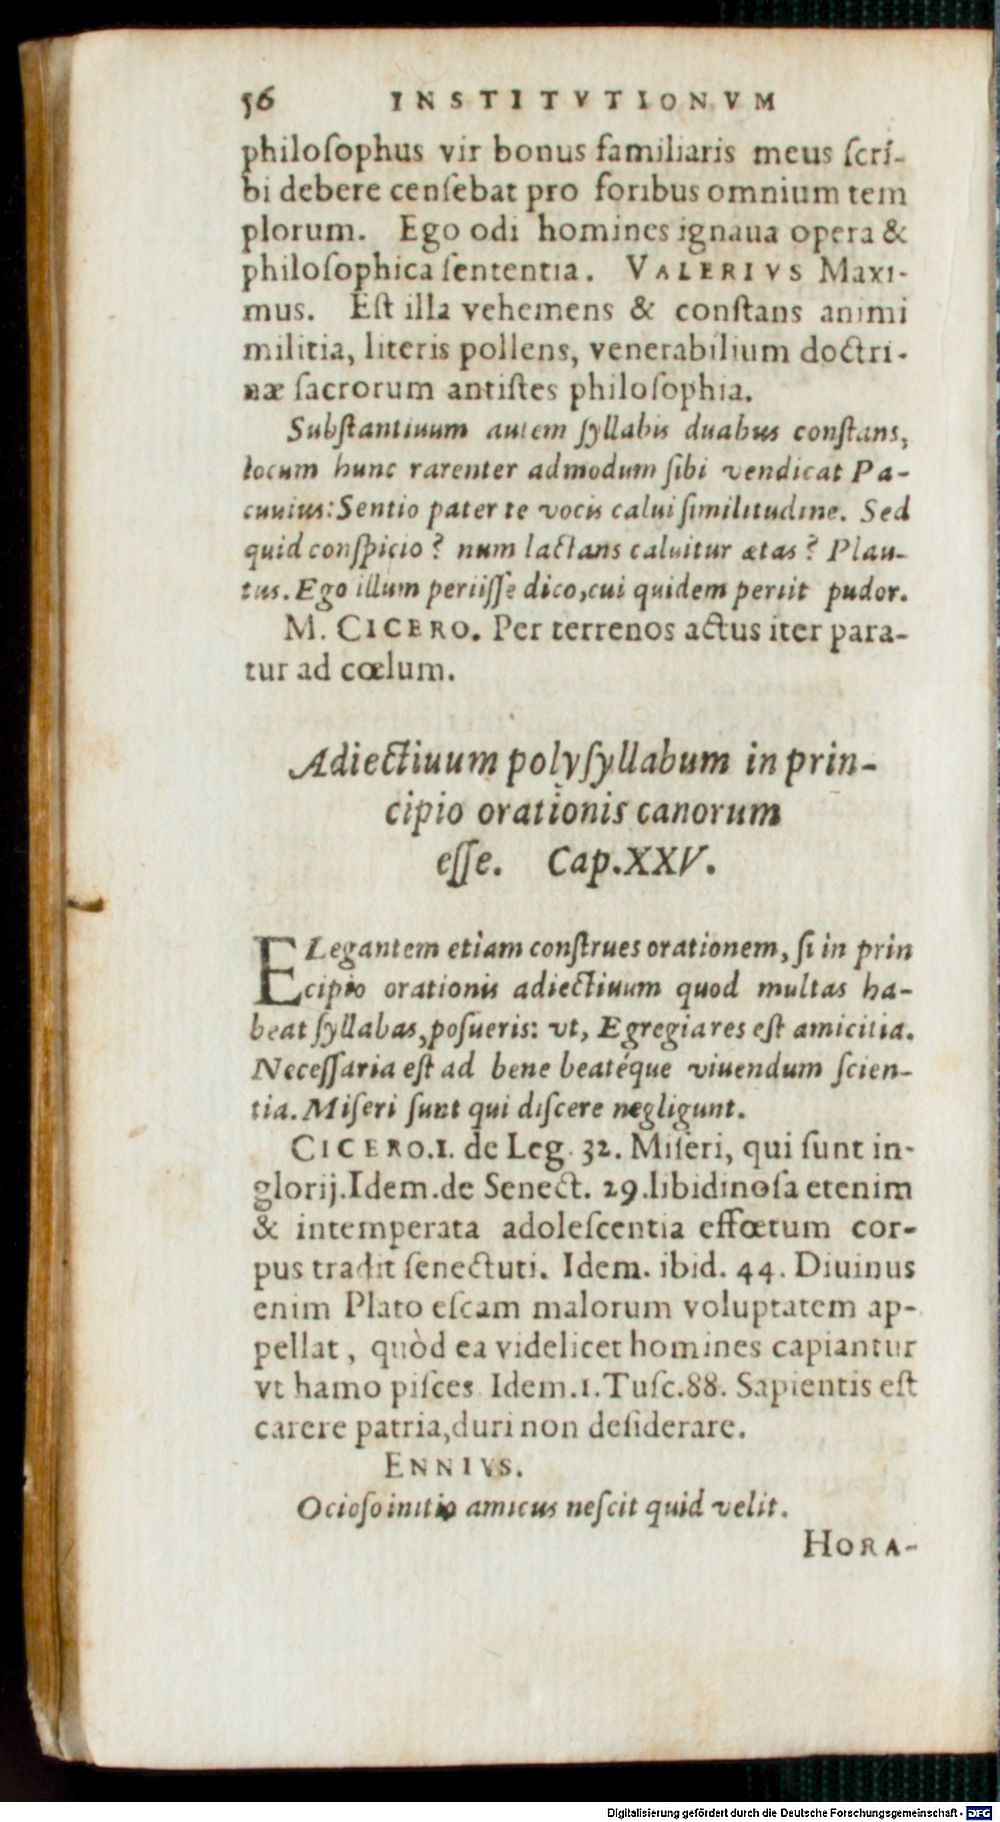 56 INSTITVTIONVM
philoſophus vir bonus familiaris meus ſcri-
bi debere cenſebat pro foribus omnium tem
plorum. Ego odi homines ignaua opera &
philoſophica ſententia. VALERIVS Maxi-
mus. Eſt illa vehemens & conſtans animi
militia, literis pollens, venerabilium doctri-
næ ſacrorum antiſtes philoſophia.
Subſtantiuum autem ſyllabis duabus conſtans,
locum hunc rarenter admodum ſibi vendicat Pa-
cuuius: Sentio pater te vocis calui ſimilitudine. Sed
quid conſpicio? num lactans caluitur ætas? Plau-
tus. Ego illum periiſſe dico, cui quidem periit pudor.
M. CICERO. Per terrenos actus iter para-
tur ad cœlum.
Adiectiuum polyſyllabum in prin-
cipio orationis canorum
eſſe. Cap. XXV.
ELegantem etiam conſtrues orationem, ſi in prin
cipio orationis adiectiuum quod multas ha-
beat ſyllabas, poſueris: vt, Egregia res eſt amicitia.
Neceſſaria eſt ad bene beatéque viuendum ſcien-
tia. Miſeri ſunt qui diſcere negligunt.
CICERO.1. de Leg. 32. Miſeri, qui ſunt in-
glorij. Idem. de Senect. 29. libidinoſa etenim
& intemperata adoleſcentia effœtum cor-
pus tradit ſenectuti. Idem. ibid. 44. Diuinus
enim Plato eſcam malorum voluptatem ap-
pellat, quòd ea videlicet homines capiantur
vt hamo piſces. Idem.1. Tuſc. 88. Sapientis eſt
carere patria, duri non deſiderare.
ENNIVS.
Ocioſo initio amicus neſcit quid velit.
HORA-
Digitalisierung gefördert durch die Deutsche Forschungsgemeinschaft - DFG